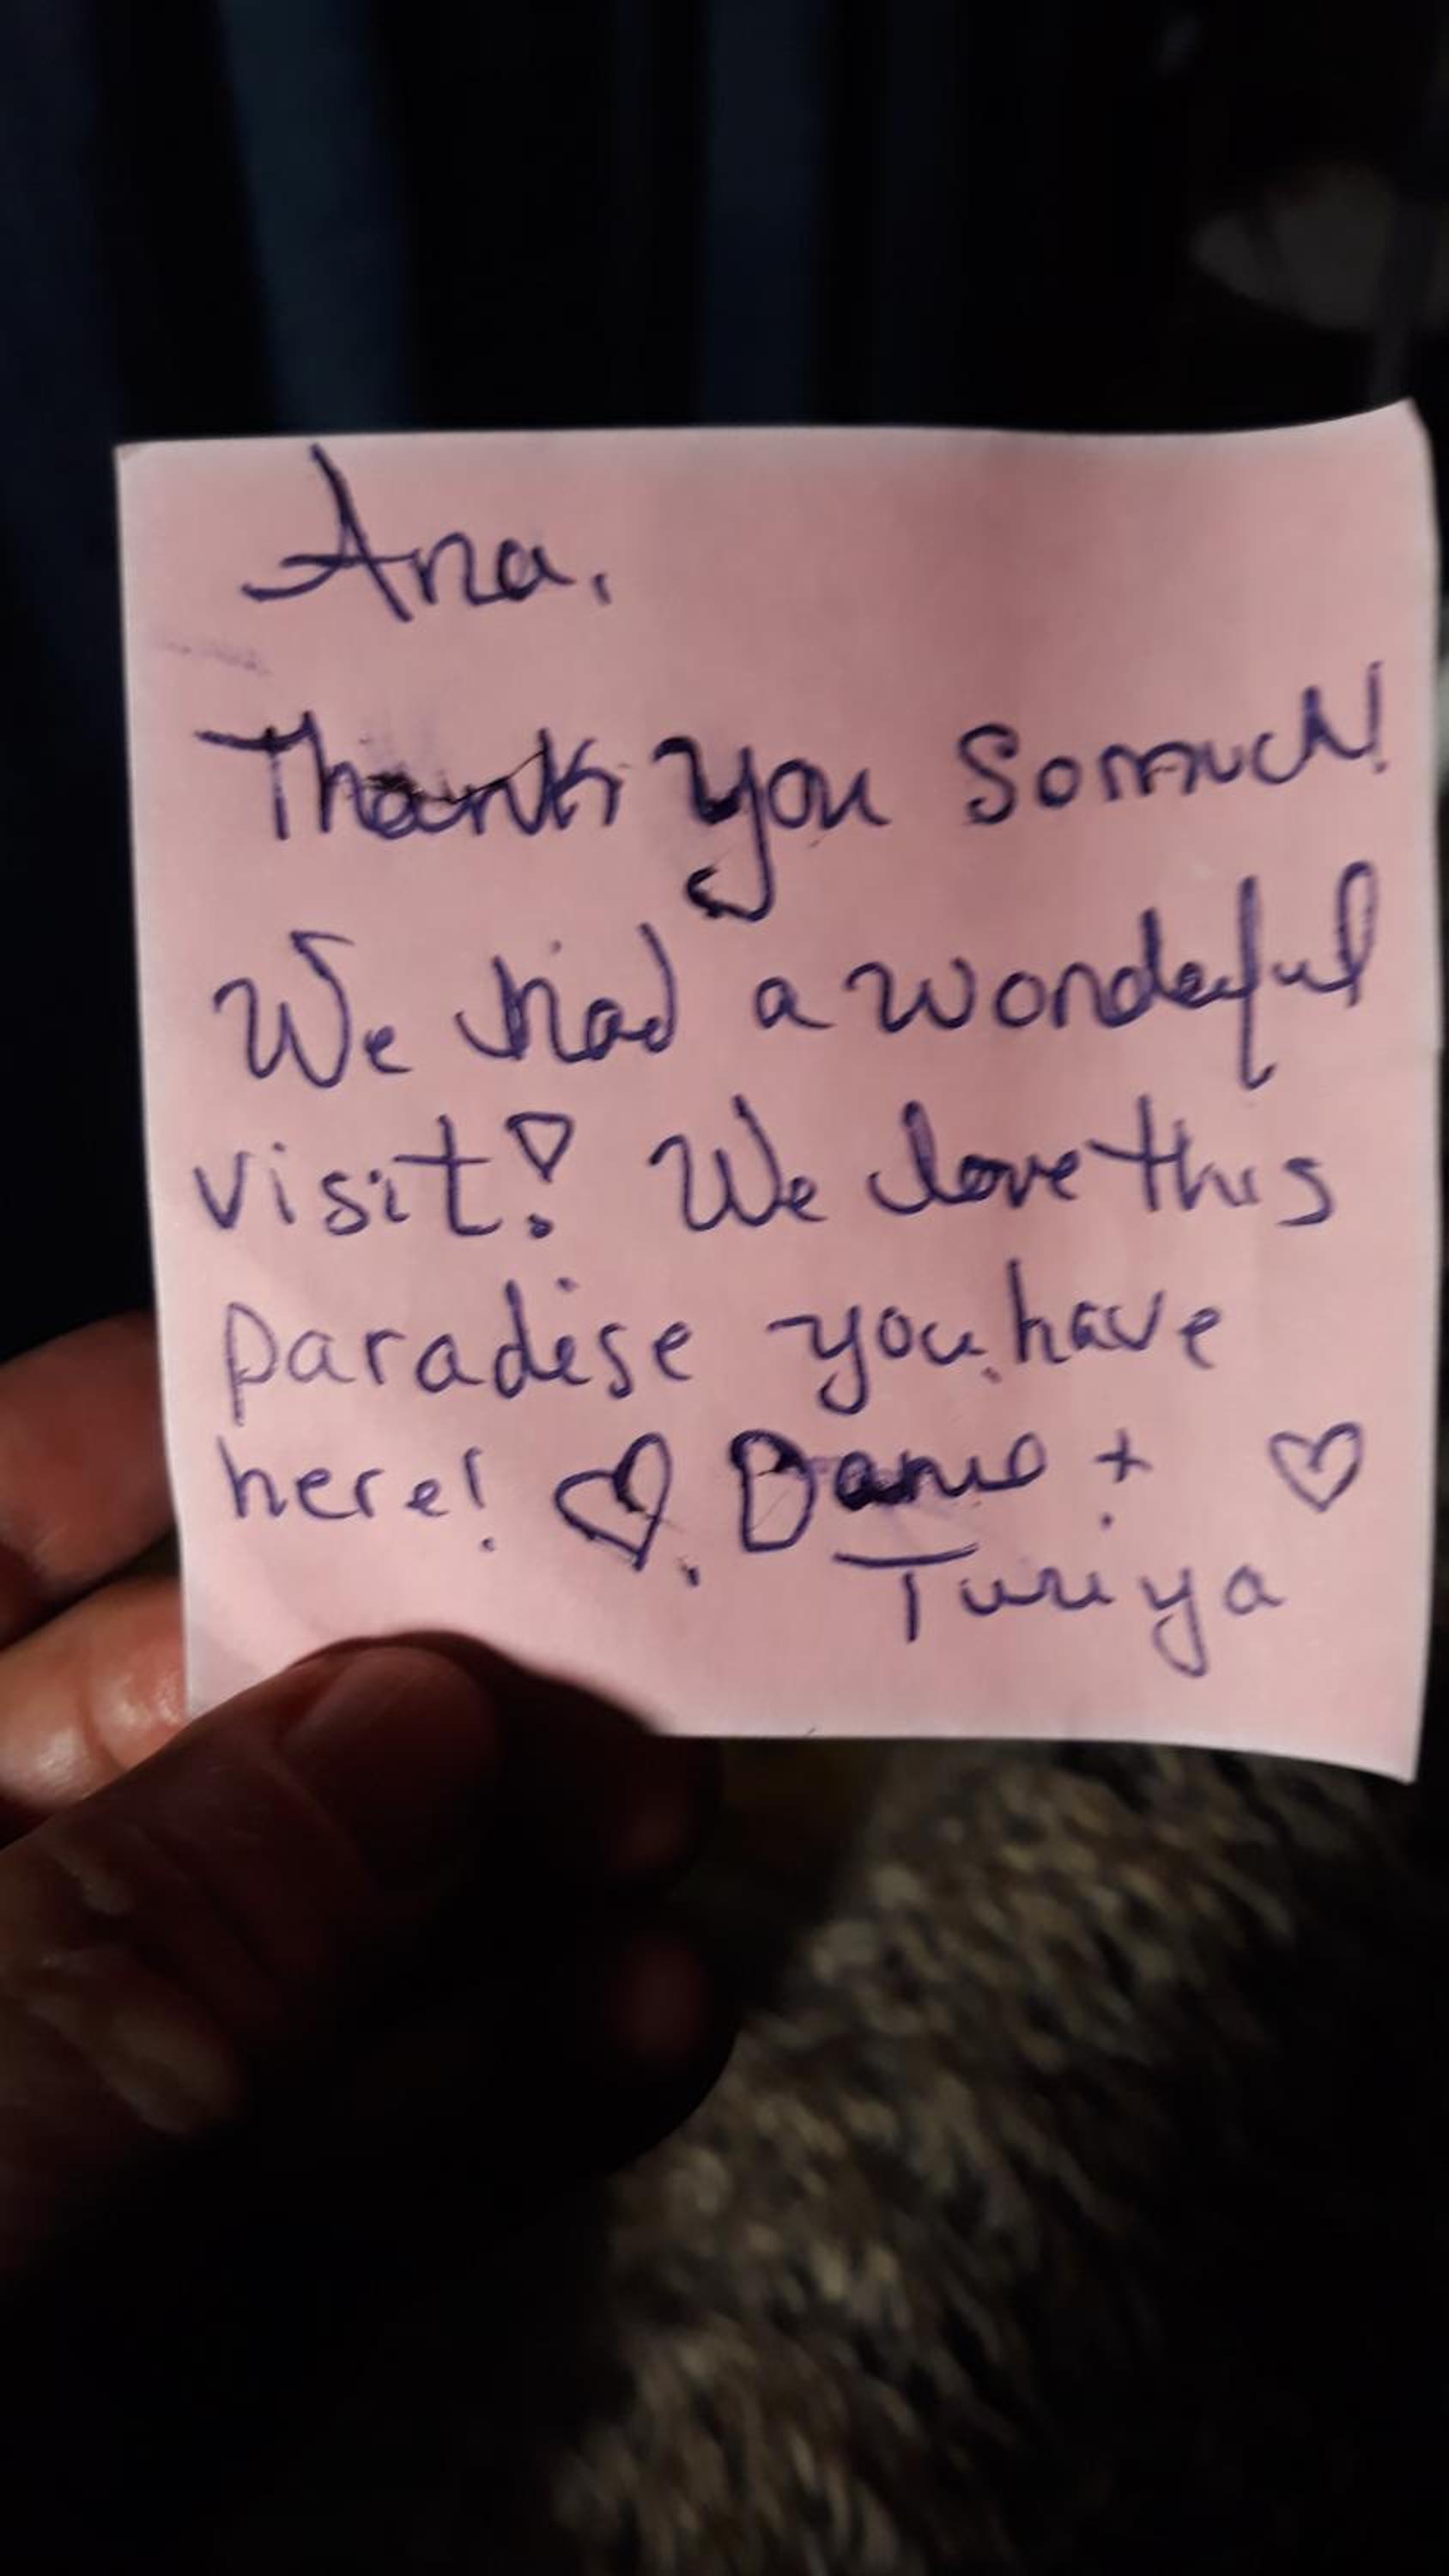 Ana,
Thank you so much!
We had a wonderful
visit! We love this
paradise you have
here! ♡. +♡
Turiya